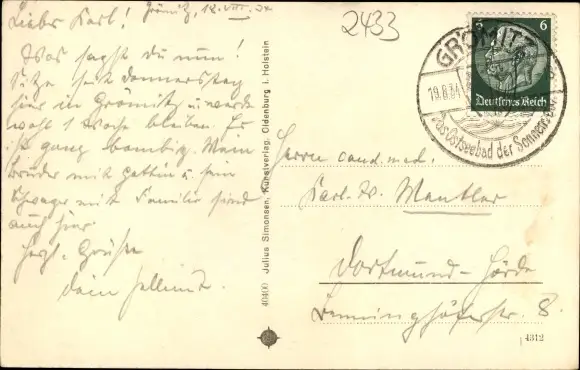 Grömitz, 18.VIII.34
Lieber Karl!
Was sagst du nun!
Sitze seit Donnerstag
hier in Grömitz u. werde
wohl 1 Woche bleiben. Es
ist ganz bombig. Mein
Bruder mit Gattin u. sein
Schwager mit Familie sind
auch hier.
Herzl. Grüße
Dein Hellmut.
40400 Julius Simonsen, Kunstverlag, Oldenburg i. Holstein
2433
6 6
Deutsches Reich
GRÖMITZ
19.8.34
Das Ostseebad der Sonnenseite
Herrn cand. med.
Karl W. Mantler
Dortmund-Hörde
8.
4312